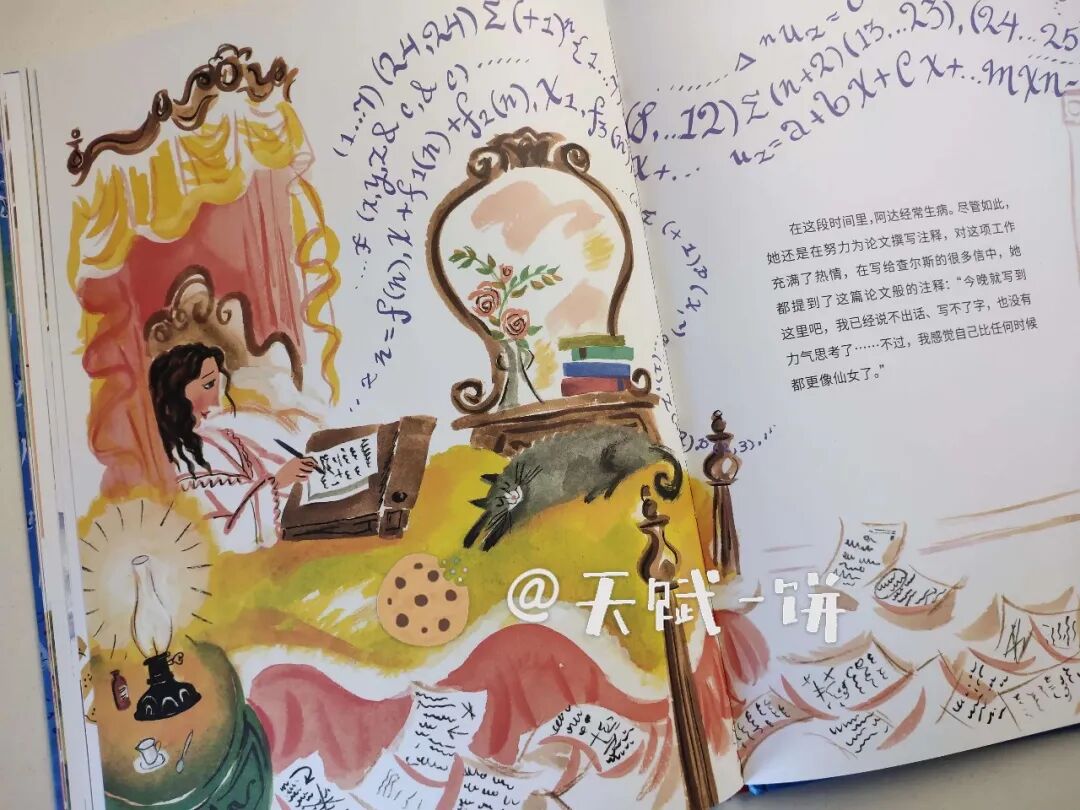 (1...7)(24,24)Σ(+1)ⁿ
(x,y,z & c,& c)
z n = f(n), x + f₁(n)+f₂(n), X₁, f₃(n)
Δⁿuz=
(8,..12)Σ(n+2)(13,..23),(24...25
x+... uz=a+bX+CX+...mXn-
在这段时间里,阿达经常生病。尽管如此,
她还是在努力为论文撰写注释,对这项工作
充满了热情,在写给查尔斯的很多信中,她
都提到了这篇论文般的注释:“今晚就写到
这里吧,我已经说不出话、写不了字,也没有
力气思考了……不过,我感觉自己比任何时候
都更像仙女了。”
@天赋一饼